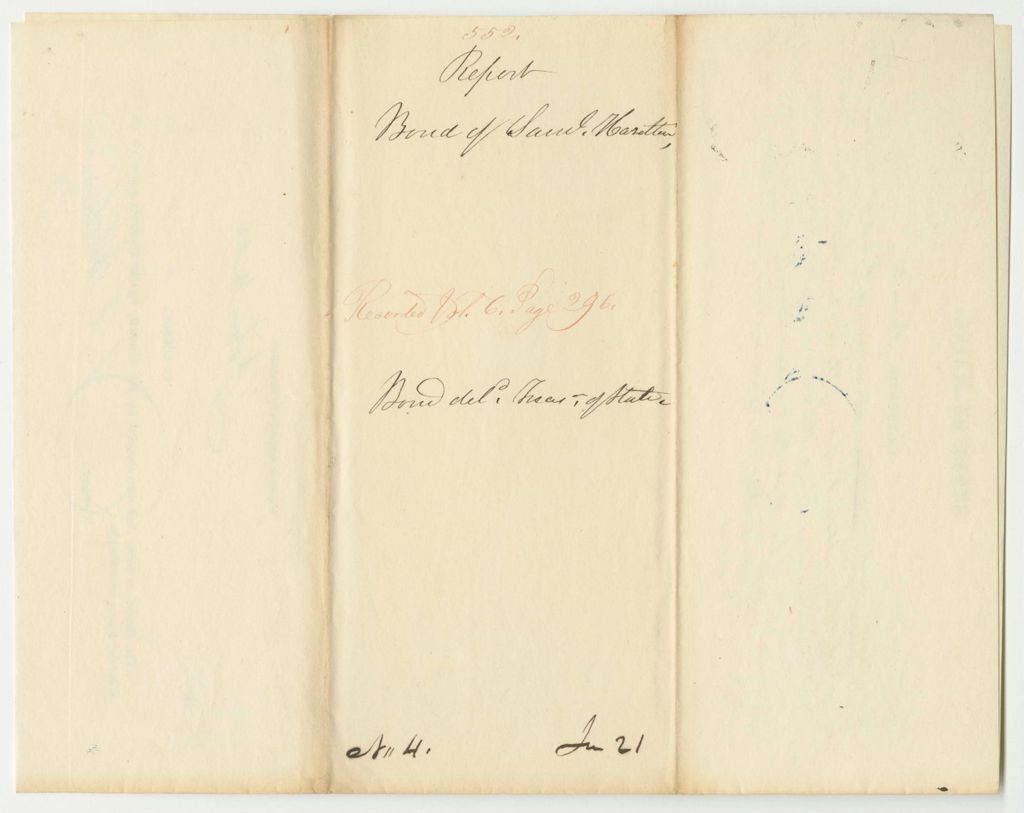 552.
Report
Bond of Saml. Haseltine,
Recorded Vol. 6. Page 296.
Bond deld. Treasr. of State
No 4.
Jn 21